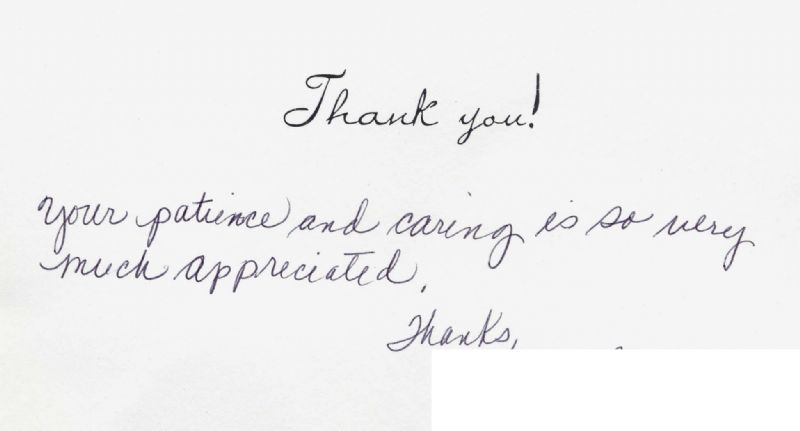 Thank you!
Your patience and caring is so very
much appreciated.
Thanks,